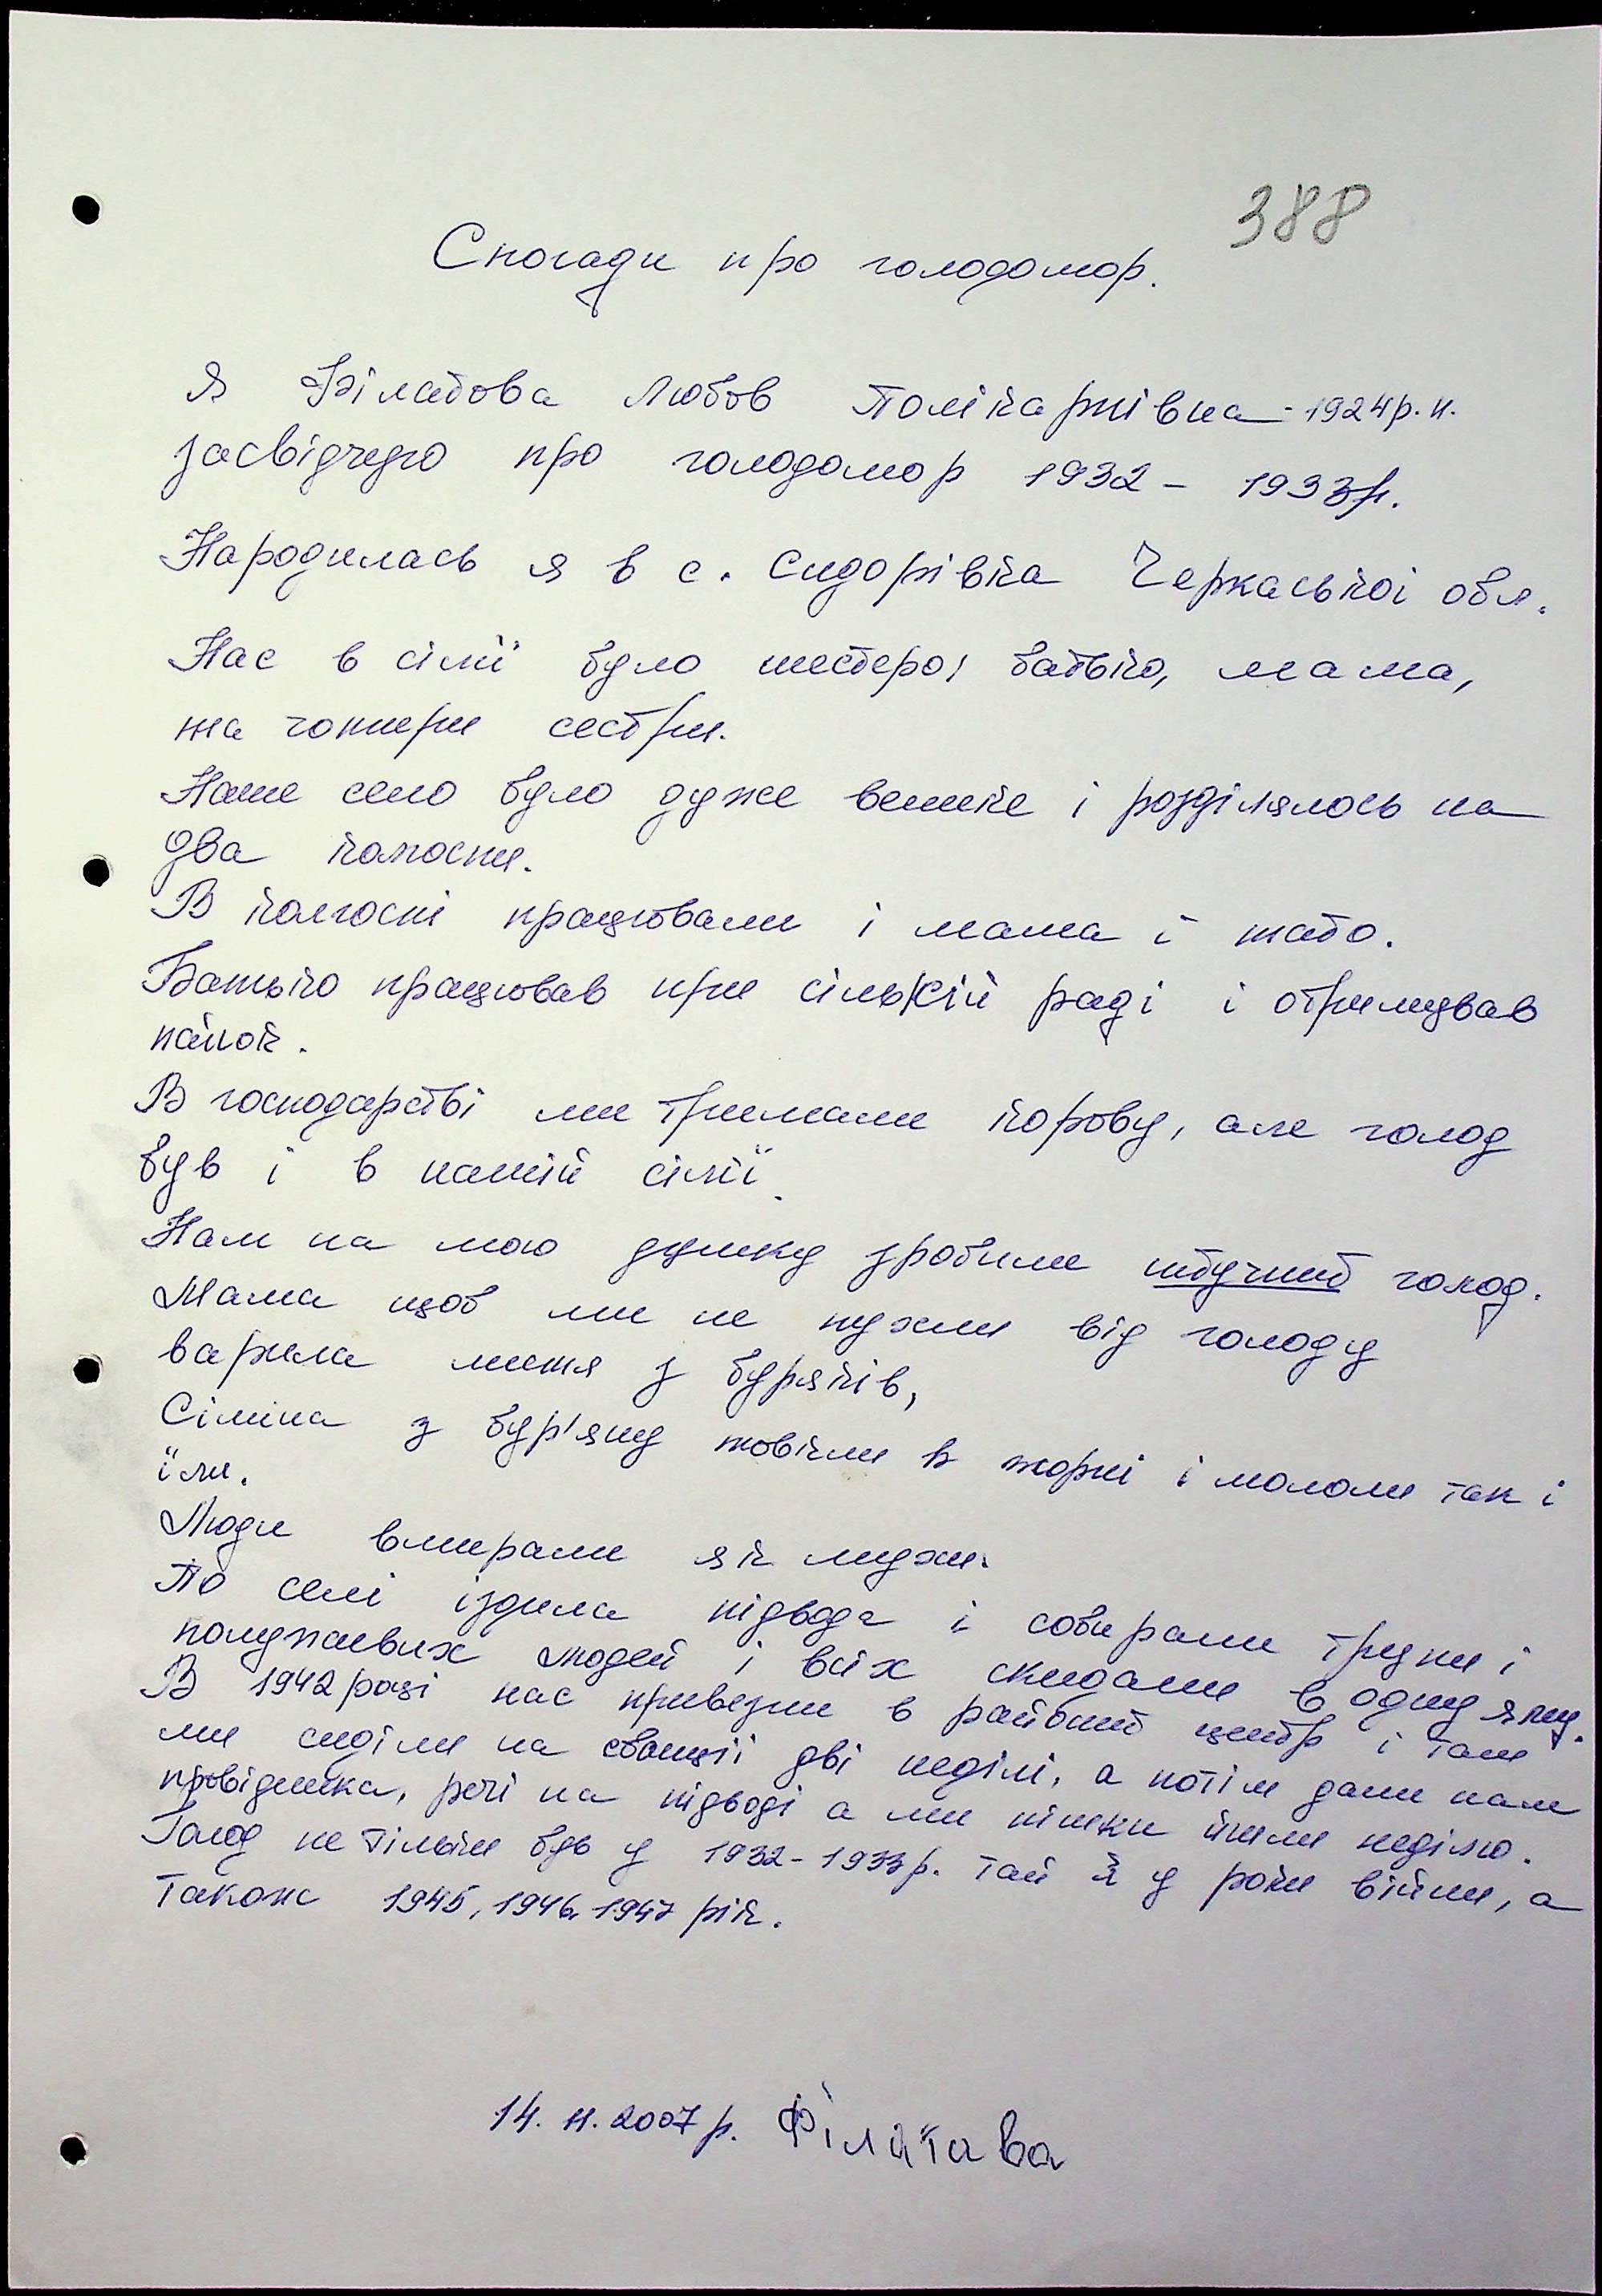 388
Спогади про голодомор.
Я Філатова Любов Полікарпівна - 1924р.н.
засвідчую про голодомор 1932 - 1933р.
Народилась я в с. Сидорівка Черкаської обл.
Нас в сімї було шестеро, батько, мама,
та чотири сестри.
Наше село було дуже велике і розділялось на
два колгоспи.
В колгоспі працювали і мама і тато.
Батько працював при сількій раді і отримував
пайок.
В господарстві ми тримали корову, але голод
був і в нашій сімї.
Нам на мою думку зробили штучний голод.
Мама щоб ми не пухли від голоду
варила листя з буряків,
Сіміна з бур'яну товкли в жорні і мололи так і
їли.
Люди вмирали як мухи.
По селі їздила підвода і собирали трупи і
полуживих людей і всіх скидали в одну яму.
В 1942 році нас привезли в районий центр і там
ми сиділи на станції дві неділі, а потім дали нам
провідника, речі на підводі а ми пішки йшли неділю.
Голод не тільки був у 1932-1933р. тай й у роки війни, а
також 1945, 1946, 1947 рік.
14. 11. 2007 р. Філатава